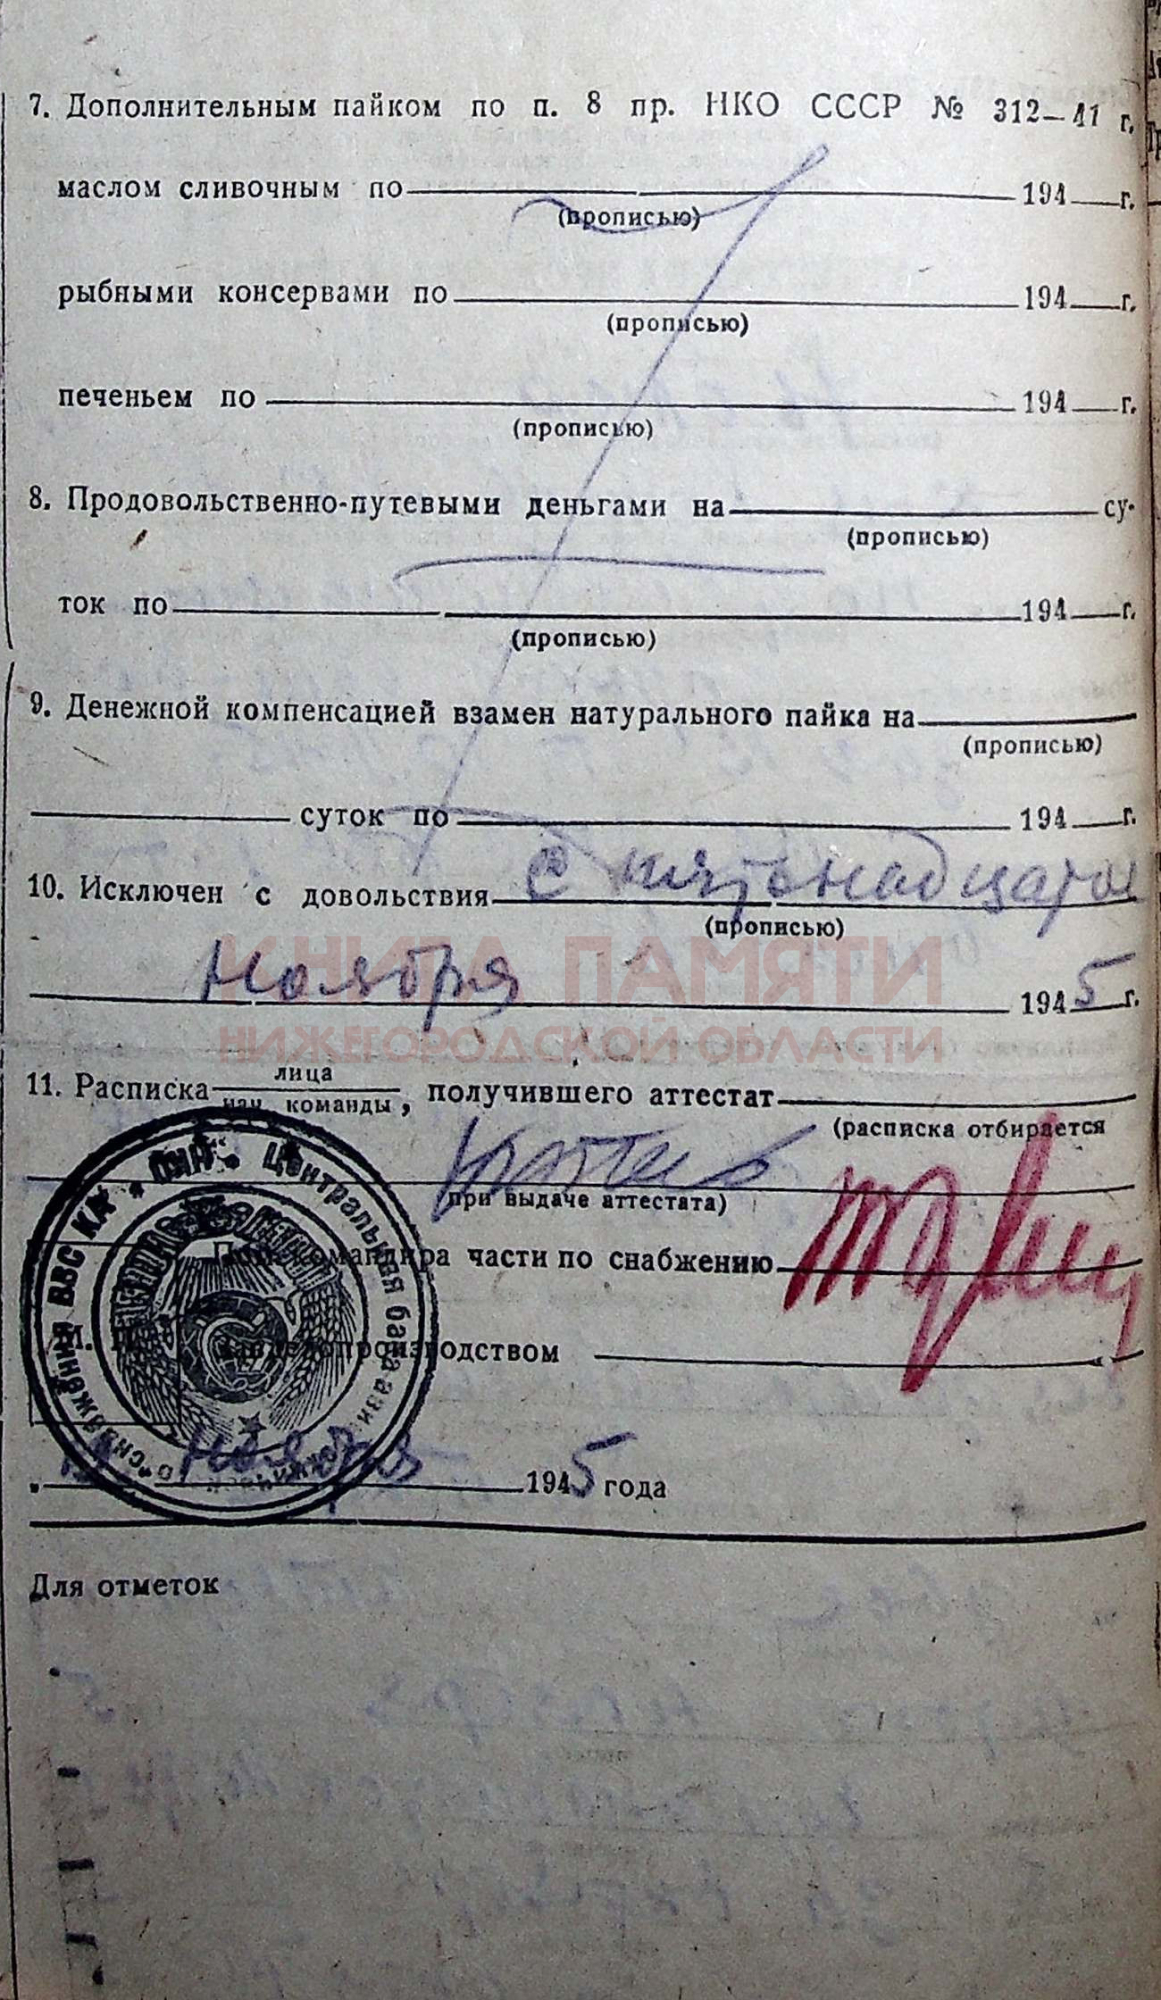 7. Дополнительным пайком по п. 8 пр. НКО СССР № 312—41 г.
маслом сливочным по 194 г.
(прописью)
рыбными консервами по 194 г.
(прописью)
печеньем по 194 г.
(прописью)
8. Продовольственно-путевыми деньгами на су-
(прописью)
ток по 194 г.
(прописью)
9. Денежной компенсацией взамен натурального пайка на
(прописью)
суток по 194 г.
10. Исключен с довольствия с пятонадцатого
(прописью)
ноября 1945 г.
КНИГА ПАМЯТИ
НИЖЕГОРОДСКОЙ ОБЛАСТИ
11. Расписка лица
нач. команды, получившего аттестат
(расписка отбирается
при выдаче аттестата)
Пом. командира части по снабжению
М. П. Завделопроизводством
Центральная база
снабжения ВВС КА
ноября 1945 года
Для отметок